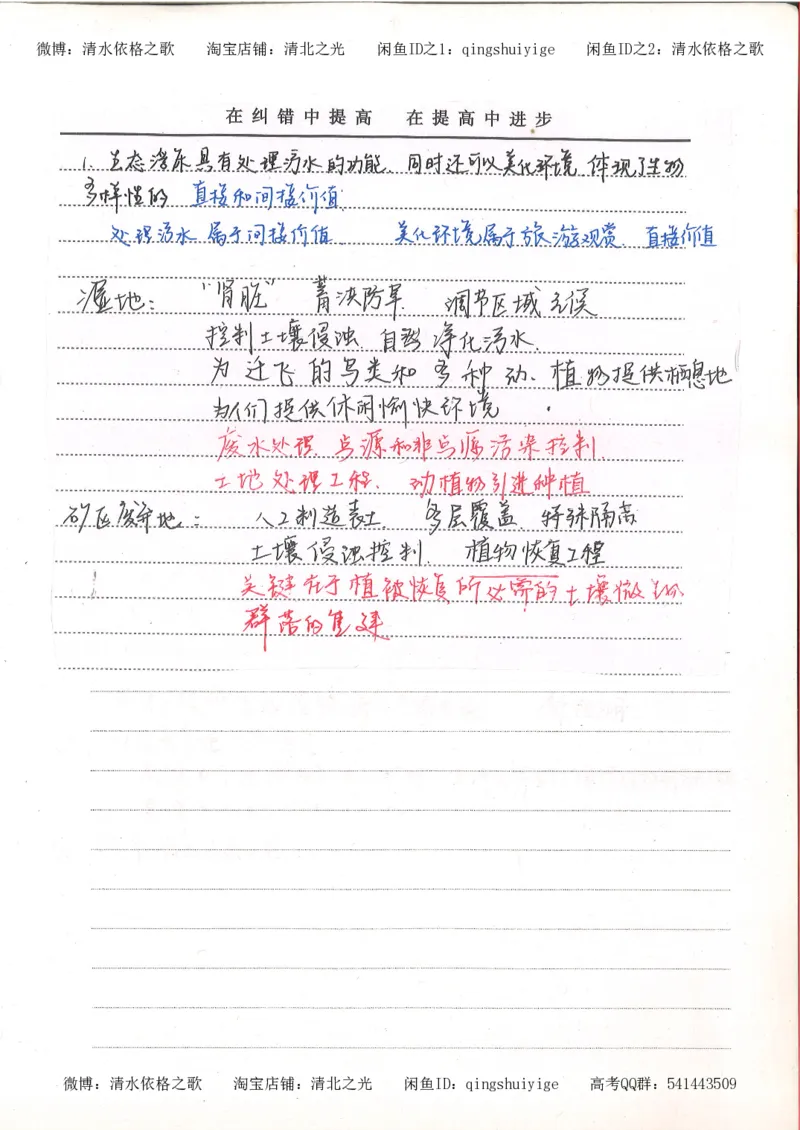 微博：清水依格之歌 淘宝店铺：清北之光 闲鱼ID之1：qingshuiyige 闲鱼ID之2：清水依格之歌
在纠错中提高 在提高中进步
1. 生态浮床具有处理污水的功能，同时还可以美化环境，体现了生物
多样性的 直接和间接价值.
处理污水 属于间接价值 美化环境属于旅游观赏. 直接价值
湿地： “肾脏” 蓄洪防旱. 调节区域气候
控制土壤侵蚀. 自然净化污水.
为迁飞的鸟类和多种动、植物提供栖息地
为人们提供休闲愉快环境
废水处理. 点源和非点源污染控制.
土地处理工程. 动植物引进种植
矿区废弃地： 人工制造表土. 多层覆盖. 特殊隔离
土壤侵蚀控制. 植物恢复工程
关键在于植被恢复所必需的土壤微生物
群落的重建.
微博：清水依格之歌 淘宝店铺：清北之光 闲鱼ID：qingshuiyige 高考QQ群：541443509